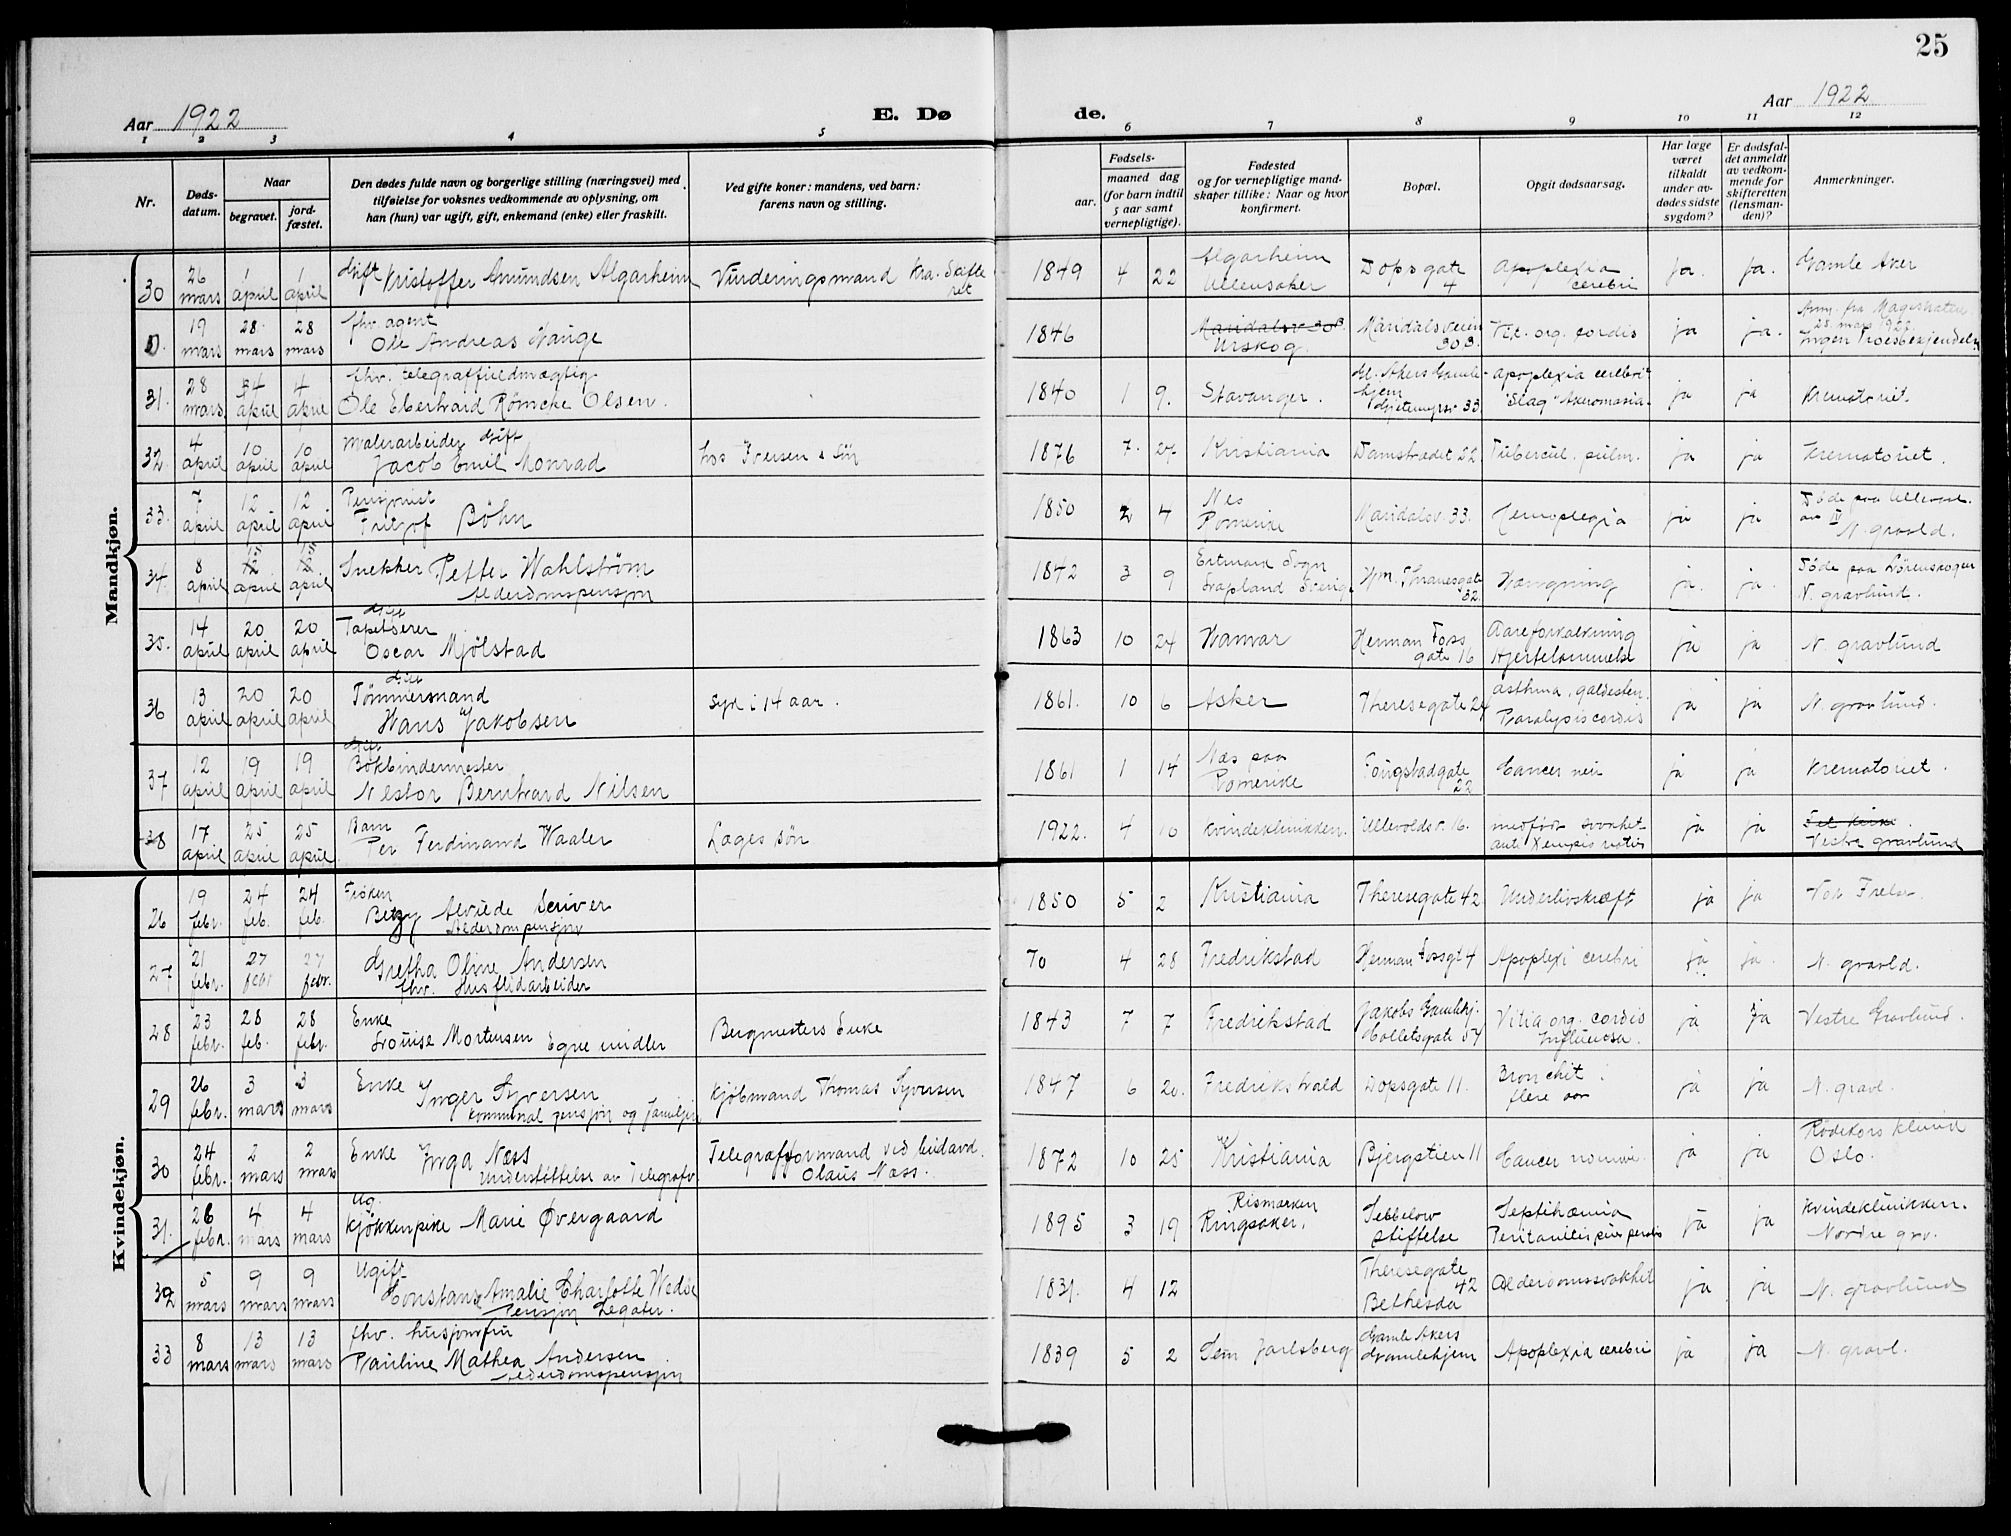 25
Aar 1922
E. Døde.
Aar 1922
1 2 3 4 5 6 7 8 9 10 11 12
Nr.
Dødsdatum.
Naar
begravet.
jordfæstet.
Den dødes fulde navn og borgerlige stilling (næringsvei) med
tilføielse for voksnes vedkommende av oplysning, om
han (hun) var ugift, gift, enkemand (enke) eller fraskilt.
Ved gifte koner: mandens, ved barn:
farens navn og stilling.
Fødsels-
aar.
maaned dag
(for barn indtil
5 aar samt
vernepligtige).
Fødested
og for vernepligtige mandskaper tillike: Naar og hvor
konfirmert.
Bopæl.
Opgit dødsaarsag.
Har læge
været
tilkaldt
under avdødes sidste
sygdom?
Er dødsfaldet anmeldt
av vedkommende for
skifteretten
(lensmanden)?
Anmerkninger.
Mandkjøn.
30 26 mars 1 april 1 april gift Kristoffer Amundsen Algarheim Vurderingsmand Kra. Skifteret 1849 4 22 Algarheim Ullensaker Dopsgate 4 Apoplexia cerebri ja. ja. Gamle Aker
19 mars 28 mars 28 mars fhv. agent Ole Andreas Hauge 1846 Maridalsv 30B. Urskog Maridalsveien 30B. Vit. org. cordis ja ja. Anm. fra Magistraten 25 mars 1922. Ingen Troesbekjendelse
31. 28 mars 4 april 4 april fhv. telegraffuldmægtig Ole Eberhard Rømcke Olsen. 1840 1 9. Stavanger. Gl. Akers Gamlehjem Gjetemyrsv 33. Apoplexia cerebri "Slag" ja ja Krematoriet.
32. 4 april 10 april 10 april Malerarbeider gift Jacob Emil Monrad hos Iversen & Søn 1876 7. 27 Kristiania Damstrædet 22 Tubercul. pulm. ja ja Krematoriet.
33. 7 april 12 april 12 april Pensjonist Fritjof Bøhn 1850 2 4 Nes Romerike Maridalsv. 33. Hemoplegia ja ja Døde paa Ullevaal. av IV N. gravld.
34. 8 april 12 15 april 12 15 april Snekker Petter Wahlstrøm Alderdomspensjon 1842 3 9 Sogn Sverige Hm. Thranesgate 32. Hængning ja. ja Døde paa Lørenskogen N. gravlund.
35. 14 april 20 april 20 april gift Tapetserer Oscar Mjølstad 1863 10 24 Hamar Herman Foss gate 16 Aareforkalkning Hjertelammelse ja ja N. gravlund
36 13 april 20 april 20 april gift Tømmermand Hans Jakobsen Syk i 14 aar. 1861. 10 6 Asker Theresegate 24 asthma, galdesten. Paralysis cordis ja ja N. gravlund.
37 12 april 19 april 19 april gift Bokbindermester Nestor Bernhard Nilsen 1861 1 14 Næs paa Romerike Fougstadgate 22 Cancer ja ja Krematoriet.
38 17 april 25 april 25 april Barn Per Ferdinand Waaler Læges søn 1922. 4 16 Kvindeklinikken. Ullevoldsv. 16. medfødt svakhet ja ja Vestre gravlund
Kvindekjøn.
26 19 febr. 24 feb. 24 feb. Frøken Betzy Alvilde Scriver Alderdompensjon 1850 5 2 Kristiania Theresegate 42 Underlivskræft ja ja Vor Frelser
27 21 febr. 27 febr 27 febr. Gretha Oline Andersen fhv. Husflidarbeider 70 4 28 Fredrikstad Herman Fossgt 4 Apoplexi cerebri ja ja. N. gravld.
28 23 febr. 28 feb. 28 febr. Enke Louise Mortensen Egne midler Bergmesters Enke 1843 7 7 Fredrikstad Jakobs Gamlehj. Colletsgate 54 Vitia org. cordis Influensa. ja ja Vestre Gravlund.
29 26 febr. 3 mars 3 mars Enke Inger Syversen kommunal pensjon og familjen Kjøbmand Thomas Syversen 1847 6 20. Fredrikshald Dopsgate 11. Bronchit flere aar ja ja N. gravl.
30 24 febr. 2 mars 2 mars Enke Inga Næss Understøttelse av Telegrafv. Telegrafformand ved Olaus Næss. 1872 10 25 Kristiania Bjergstien 11 Cancer ja ja Rødekors klinik Oslo.
31. 26 febr. 4 mars 4 mars Ug. Kjøkkenpike Marie Øvergaard 1895 3 19 Rismarken Ringsaker. Sebbelow stiftelse Septikæmia ja ja Kvindeklinikken. Nordre grv.
32 5 mars 9 mars 9 mars Ugift Constanse Amalie Charlotte Wedse Pensjon Legater. 1831. 4 12 Theresegate 42 Bethesda Alderdomssvakhet ja ja N. gravlund
33 8 mars 13 mars 13 mars fhv. husjomfru Pauline Mathea Andersen Alderdomspensjon 1839 5 2 Sem Jarlsberg Gamle Akers Gamlehjem Apoplexia cerebri ja ja N. gravl.